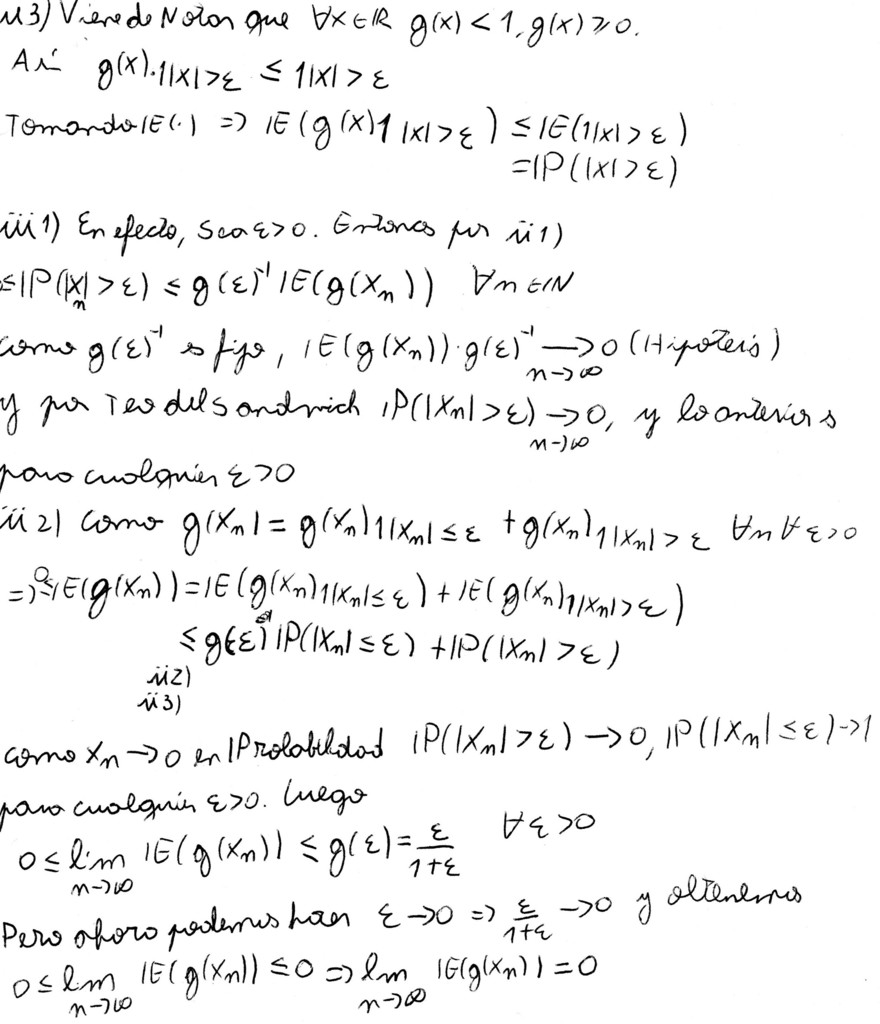 ii3) Viendo Notar que ∀x∈ℝ g(x)<1, g(x)≥0.
Así g(x)·1|x|>ε ≤ 1|x|>ε
Tomando IE(·) => IE(g(x)1|x|>ε) ≤ IE(1|x|>ε)
=IP(|x|>ε)
iii1) En efecto, sea ε>0. Entonces por ii1)
≤IP(|X_n|>ε) ≤ g(ε)^-1 IE(g(X_n)) ∀n∈IN
como g(ε)^-1 es fijo, IE(g(X_n))·g(ε)^-1 → 0 (Hipótesis)
n→∞
y por Teo del Sandwich IP(|X_n|>ε) → 0, y lo anterior es
n→∞
para cualquier ε>0
iii2) Como g(X_n) = g(X_n)1|X_n|≤ε + g(X_n)1|X_n|>ε ∀n ∀ε>0
=> 0≤IE(g(X_n)) = IE(g(X_n)1|X_n|≤ε) + IE(g(X_n)1|X_n|>ε)
≤ g(ε) IP(|X_n|≤ε) + IP(|X_n|>ε)
ii2)
ii3)
como X_n→0 en IProbabilidad IP(|X_n|>ε) → 0, IP(|X_n|≤ε)→1
para cualquier ε>0. Luego
0 ≤ lim IE(g(X_n)) ≤ g(ε) = ε/(1+ε) ∀ε>0
n→∞
Pero ahora podemos hacer ε→0 => ε/(1+ε) → 0 y obtenemos
0 ≤ lim IE(g(X_n)) ≤ 0 => lim IE(g(X_n)) = 0
n→∞ n→∞